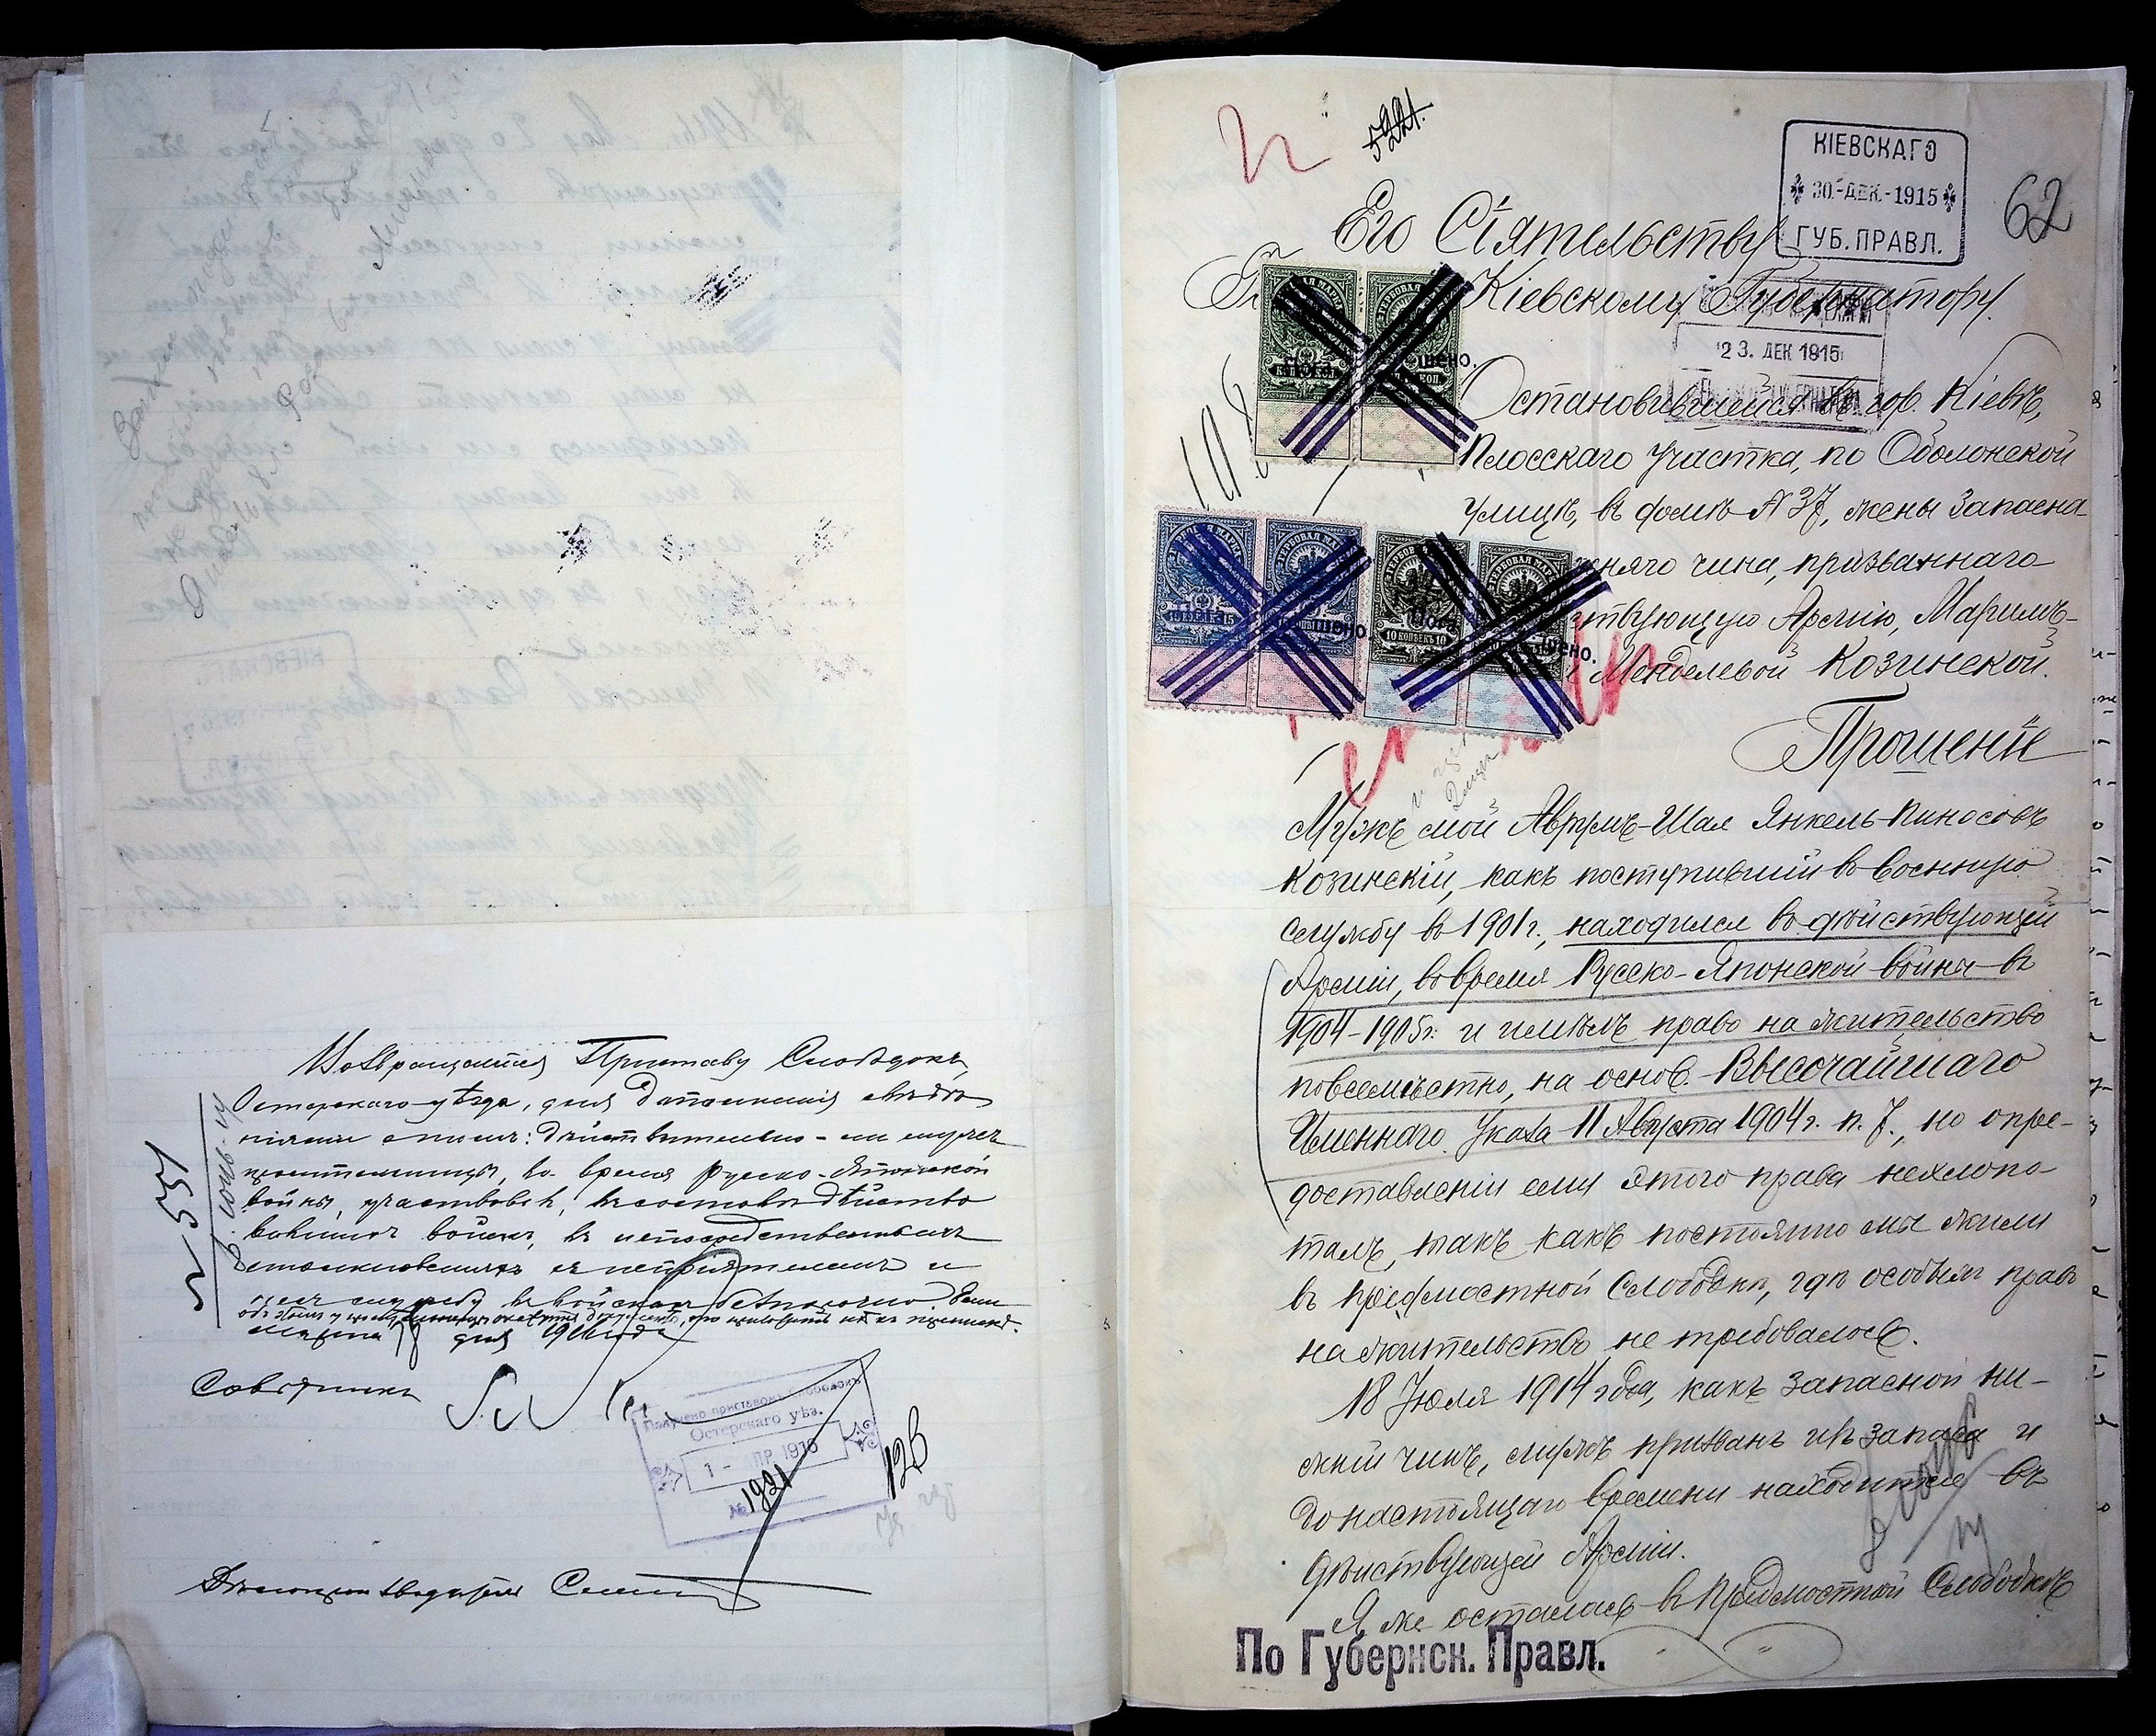 Возвращается Приставу Слободокъ
Остерскаго уѣзда, для дополненія свѣдѣ
ніями о томъ: дѣйствительно-ли мужъ
просительницы, во время русско-Японской
войны, участвовалъ, въ составѣ дѣйство
вавшихъ войскъ, въ непосредственныхъ
столкновеніяхъ съ непріятелемъ и
несъ службу въ войскахъ безпорочно. Если
объ этомъ у
Марта 18 дня 1916 года
Совѣтникъ
№ 531
Получено приставомъ слободокъ
Остерскаго уѣз.
1 - АПР. 1916
№ 1921
123
Дѣлопроизводитель
5221.
КІЕВСКАГО
30-ДЕК.-1915
ГУБ. ПРАВЛ.
62
Его Сіятельству
Кіевскому Губернатору.
23. ДЕК 1915
Остановившейся въ гор. Кіевѣ,
Плосскаго участка, по Оболонской
улицѣ, въ домѣ № 37, жены запасна
жняго чина, призваннаго
ствующую Армію, Маріамъ-
Менделевой Козинской.
Прошеніе
Мужъ мой Аврумъ-Шая Янкель-Пинхосовъ
Козинскій, какъ поступившій въ военную
службу въ 1901 г., находился въ дѣйствующей
Арміи, во время Русско-Японской войны въ
1904-1905 г. и имѣлъ право на жительство
повсемѣстно, на основ. Высочайшаго
Именнаго Указа 11 Августа 1904 г. п. 7., но о пре-
доставленіи ему этого права не хлопо-
талъ, такъ какъ постоянно мы жили
въ предмостной Слободки, гдѣ особыхъ правъ
на жительство не требовалось.
18 Іюля 1914 года, какъ запасной ни-
жній чинъ, мужъ призванъ изъ запаса и
до настоящаго времени находится въ
дѣйствующей Арміи.
Я же осталась въ предмостной Слободкѣ
По Губернск. Правл.